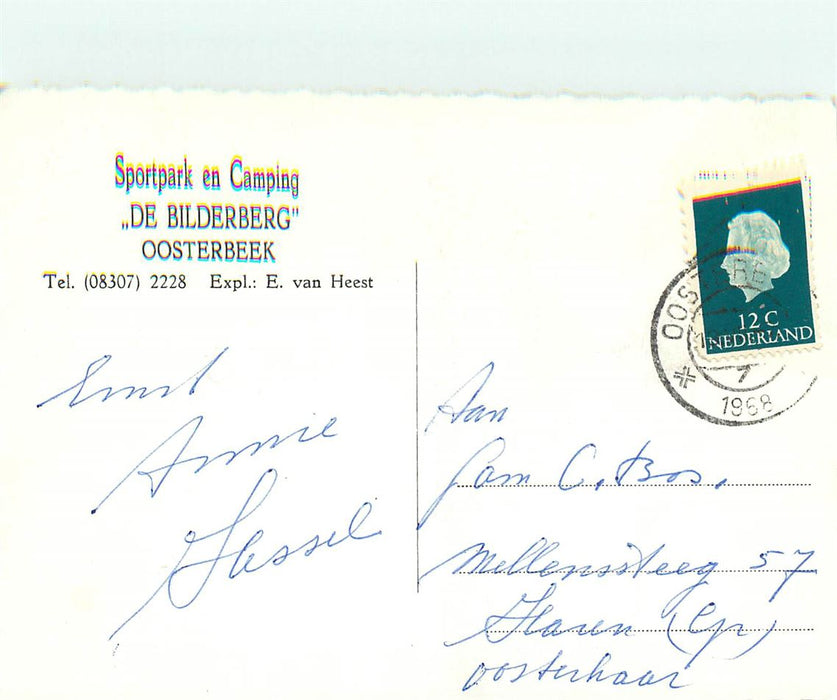 Sportpark en Camping
„DE BILDERBERG"
OOSTERBEEK
Tel. (08307) 2228 Expl.: E. van Heest
Ernst
Annie
Hassel
12 C
NEDERLAND
7
1968
Aan
Fam C. Bos.
Mellenssteeg 57
Haren (Gr)
Oosterhaar